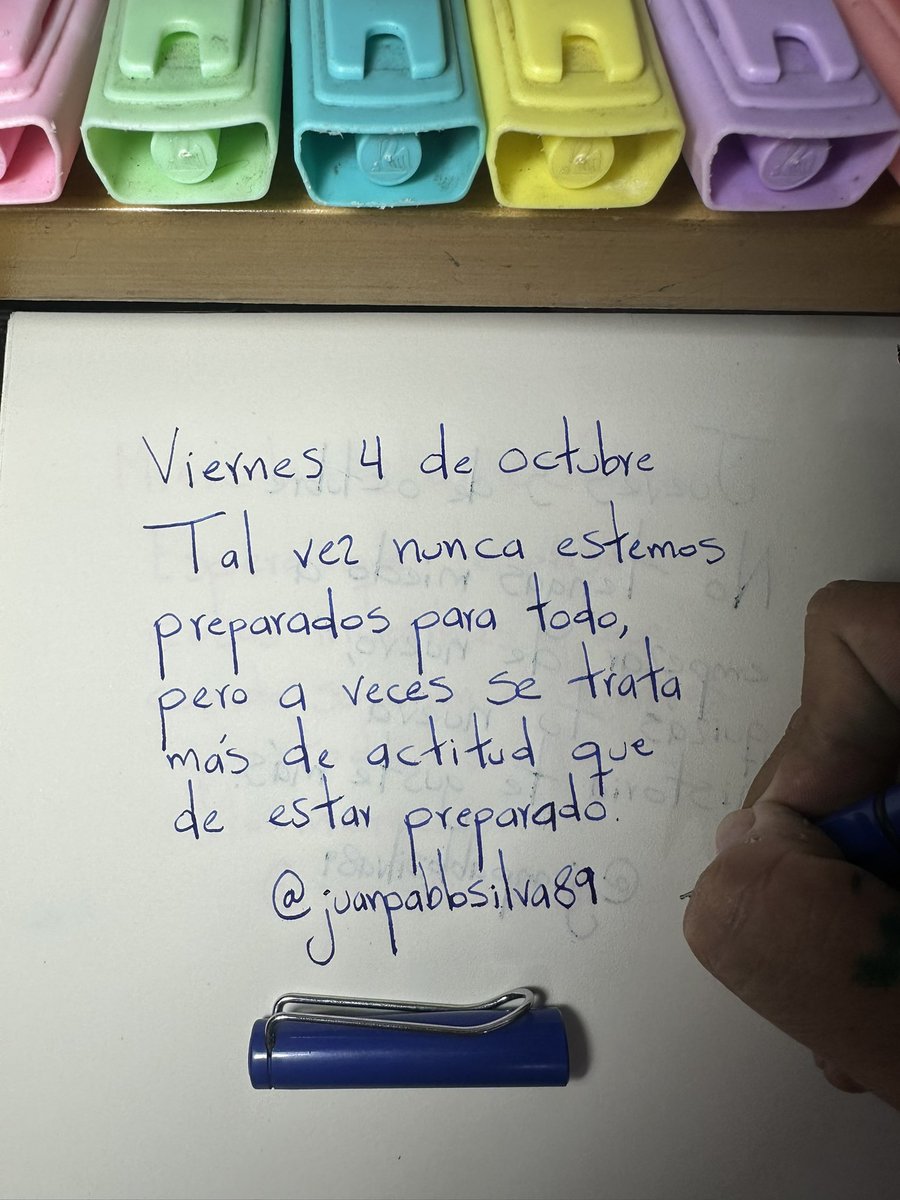 Viernes 4 de octubre
Tal vez nunca estemos
preparados para todo,
pero a veces se trata
más de actitud que
de estar preparado.
@juanpablosilva89